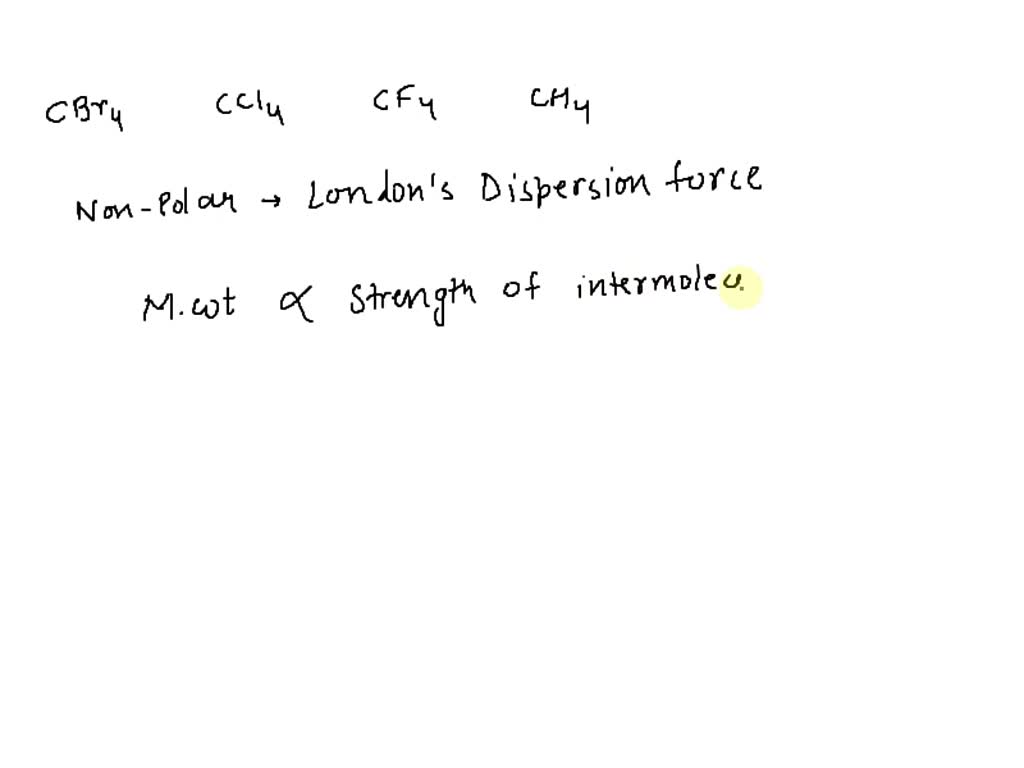 CBr4 CCl4 CF4 CH4
Non-Polar → London's Dispersion force
M.wt ∝ Strength of intermolecu